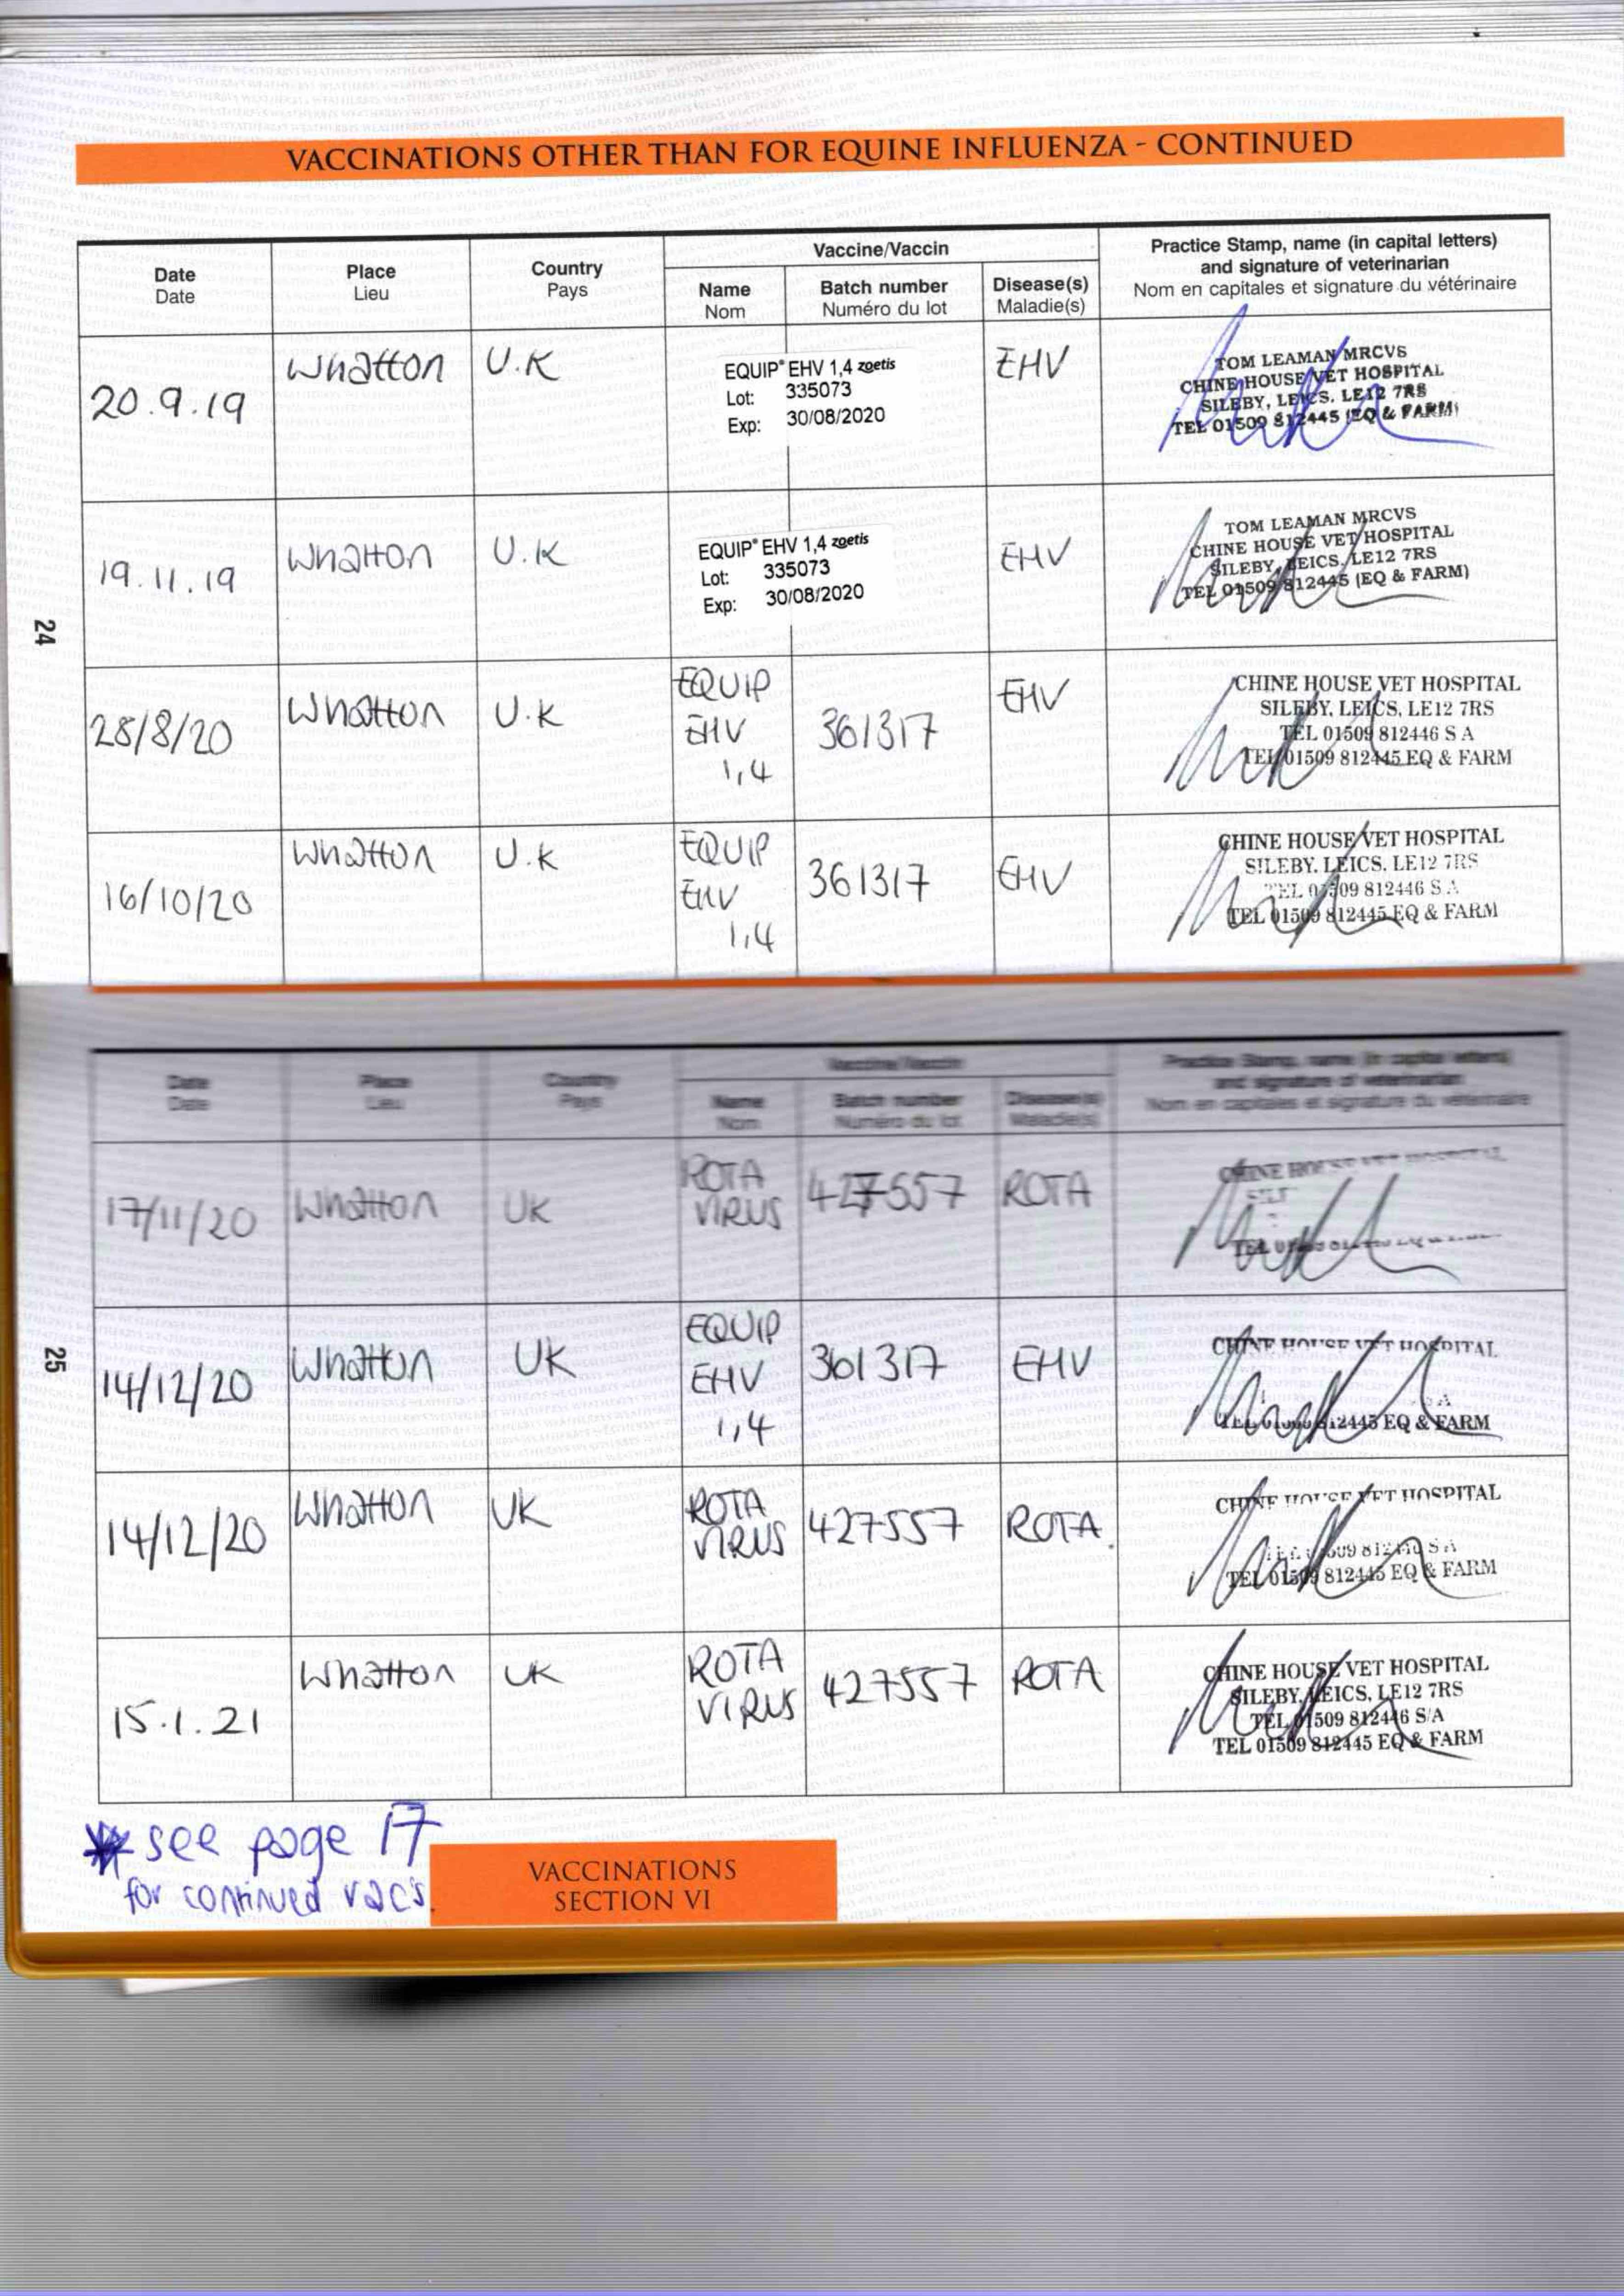 VACCINATIONS OTHER THAN FOR EQUINE INFLUENZA - CONTINUED
Date
Date
Place
Lieu
Country
Pays
Vaccine/Vaccin
Name
Nom
Batch number
Numéro du lot
Disease(s)
Maladie(s)
Practice Stamp, name (in capital letters)
and signature of veterinarian
Nom en capitales et signature du vétérinaire
20.9.19
Whatton
U.K
EQUIP® EHV 1,4 zoetis
Lot: 335073
Exp: 30/08/2020
EHV
TOM LEAMAN MRCVS
CHINE HOUSE VET HOSPITAL
SILEBY, LEICS. LE12 7RS
TEL 01509 812445 (EQ & FARM)
19.11.19
Whatton
U.K
EQUIP® EHV 1,4 zoetis
Lot: 335073
Exp: 30/08/2020
EHV
TOM LEAMAN MRCVS
CHINE HOUSE VET HOSPITAL
SILEBY, LEICS, LE12 7RS
TEL 01509 812445 (EQ & FARM)
24
28/8/20
Whatton
U.K
EQUIP
EHV
1,4
361317
EHV
CHINE HOUSE VET HOSPITAL
SILEBY, LEICS, LE12 7RS
TEL 01509 812446 S A
TEL 01509 812445 EQ & FARM
16/10/20
Whatton
U.K
EQUIP
EHV
1,4
361317
EHV
CHINE HOUSE VET HOSPITAL
SILEBY, LEICS, LE12 7RS
TEL 01509 812446 S A
TEL 01509 812445 EQ & FARM
Date
Date
Place
Lieu
Country
Pays
Vaccine/Vaccin
Name
Nom
Batch number
Numéro du lot
Disease(s)
Maladie(s)
Practice Stamp, name (in capital letters)
and signature of veterinarian
Nom en capitales et signature du vétérinaire
17/11/20
Whatton
UK
ROTA
VIRUS
427557
ROTA
CHINE HOUSE VET HOSPITAL
TEL
25
14/12/20
Whatton
UK
EQUIP
EHV
1,4
361317
EHV
CHINE HOUSE VET HOSPITAL
TEL 01509 812445 EQ & FARM
14/12/20
Whatton
UK
ROTA
VIRUS
427557
ROTA.
CHINE HOUSE VET HOSPITAL
TEL 01509 812446 S A
TEL 01509 812445 EQ & FARM
15.1.21
Whatton
UK
ROTA
VIRUS
427557
ROTA
CHINE HOUSE VET HOSPITAL
SILEBY, LEICS, LE12 7RS
TEL 01509 812446 S/A
TEL 01509 812445 EQ & FARM
* see page 17
for continued vacs.
VACCINATIONS
SECTION VI